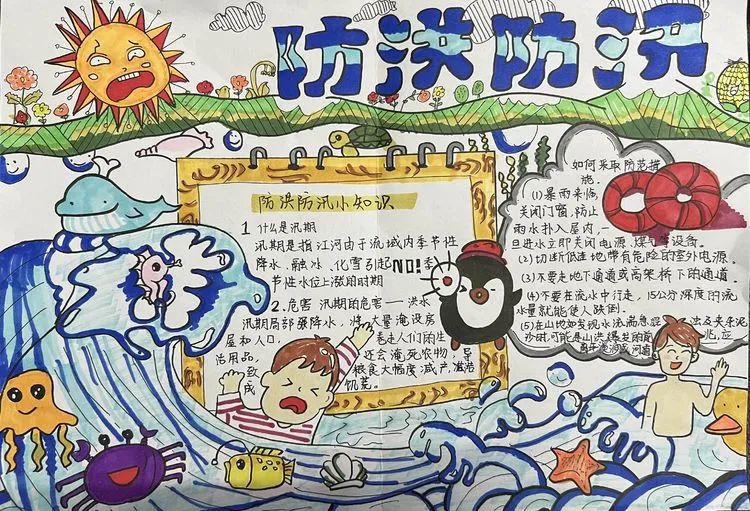 防洪防汛
防洪防汛小知识
1 什么是汛期
汛期是指江河由于流域内季节性
降水、融冰、化雪引起 季
节性水位上涨的时期
NO!
2.危害 汛期的危害——洪水
汛期局部强降水,将大量淹没房
屋和人口, 卷走人们的生
活用品, 还会淹死农物,导
致 粮食大幅度减产,
成 饥荒
如何采取防范措
施.
(1)暴雨来临,
关闭门窗,防止
雨水扑入屋内,一
旦进水立即关闭电源、煤气等设备。
(2)切断低洼地带有危险的室外电源。
(3)不要走地下通道或高架桥下的通道。
(4)不要在流水中行走,15公分深度的流
水量就能使人跌倒。
(5)在山地如发现水流湍急,混浊及夹杂泥
沙时,可能是山洪爆发的前兆,应
离开 河